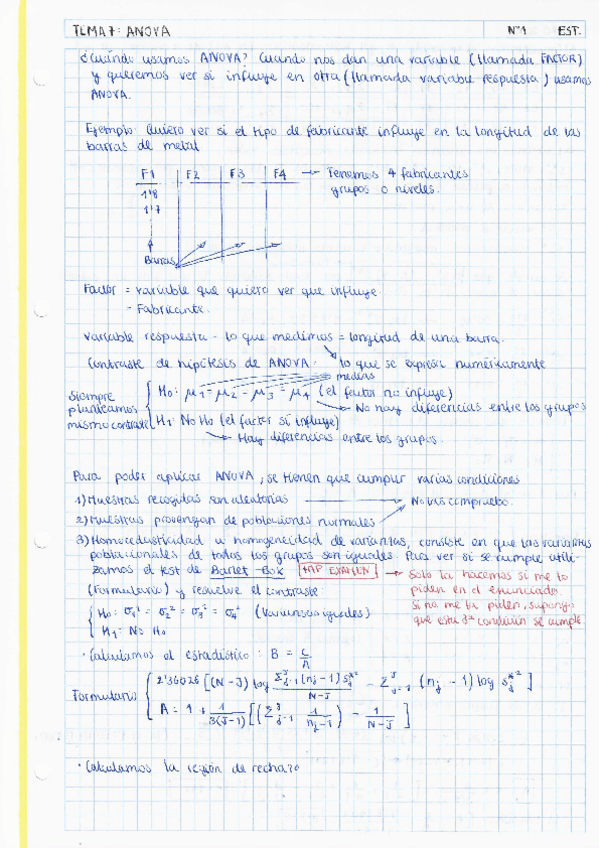 TEMA 7: ANOVA Nº1 EST.
¿Cuándo usamos ANOVA? Cuando nos dan una variable (llamada FACTOR)
y queremos ver si influye en otra (llamada variable respuesta) usamos
ANOVA.
Ejemplo: Quiero ver si el tipo de fabricante influye en la longitud de las
barras de metal
F1 F2 F3 F4 → Tenemos 4 fabricantes
1'8 grupos o niveles.
1'7
Barras
Factor = variable que quiero ver que influye
- Fabricante.
Variable respuesta - lo que medimos = longitud de una barra.
Contraste de hipótesis de ANOVA: lo que se expresa numéricamente
medias
Siempre planteamos mismo contraste
H₀: μ₁ = μ₂ - μ₃ = μ₄ (el factor no influye)
→ No hay diferencias entre los grupos
H₁: No H₀ (el factor sí influye)
→ Hay diferencias entre los grupos.
Para poder aplicar ANOVA, se tienen que cumplir varias condiciones
1) Muestras recogidas son aleatorias → No las compruebo.
2) Muestras provengan de poblaciones normales
3) Homocedasticidad u homogeneidad de varianzas, consiste en que las varianzas
poblacionales de todos los grupos son iguales. Para ver si se cumple utili-
zamos el test de Barlet-Box ↑AP EXAMEN → Solo la hacemos si me lo
(Formulario) y resuelve el contraste: piden en el enunciado.
Si no me la piden, supongo
que esta 3ª condición se cumple.
H₀: σ₁² = σ₂² = σ₃² = σ₄² (Varianzas iguales)
H₁: No H₀
· Calculamos el estadístico: B = C/A
Formulario
2'30026 [(N-J) log (Σ^J_{j=1} (n_j - 1) s_j*²)/(N-J) - Σ^J_{j=1} (n_j - 1) log s_j*²]
A = 1 + 1/(3(J-1)) [(Σ^J_{j=1} 1/(n_j - 1)) - 1/(N-J)]
· Calculamos la región de rechazo